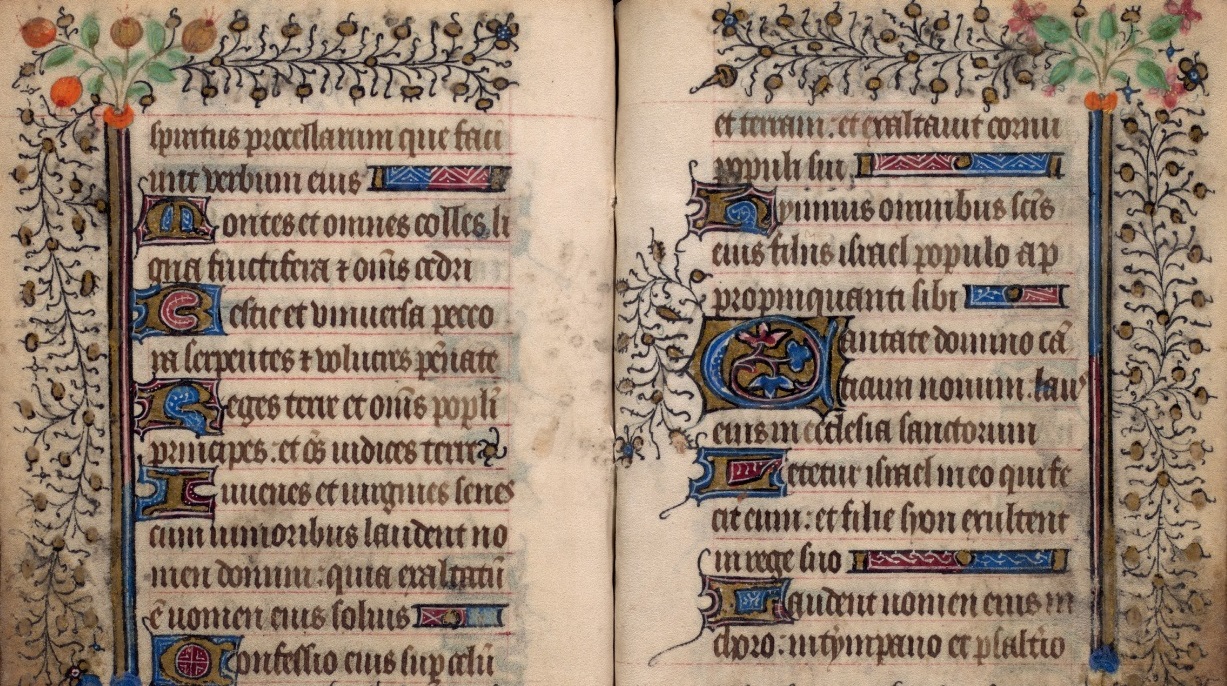 spiritus procellarum que faci
unt verbum eius
Montes et omnes colles li
gna fructifera ⁊ om̅s cedri
Bestie et vniuersa peco
ra serpentes ⁊ volucres pe̅nate
Reges terre et om̅s popl̅i
principes : et o̅s iudices terre
Iuuenes et uirgines senes
cum iunioribus laudent no
men domini : quia exaltatu̅
e̅ nomen eius solius
Confessio eius sup celu̅
et terram : et exaltauit cornu
populi sui
Hymnus omnibus sc̅is
eius filiis israel populo ap
propinquanti sibi
Cantate domino ca̅
ticum nouum . laus
eius in ecclesia sanctorum
Letetur israel in eo qui fe
cit eum : et filie syon exultent
in rege suo
Laudent nomen eius in
choro : in tympano et psalt̅io